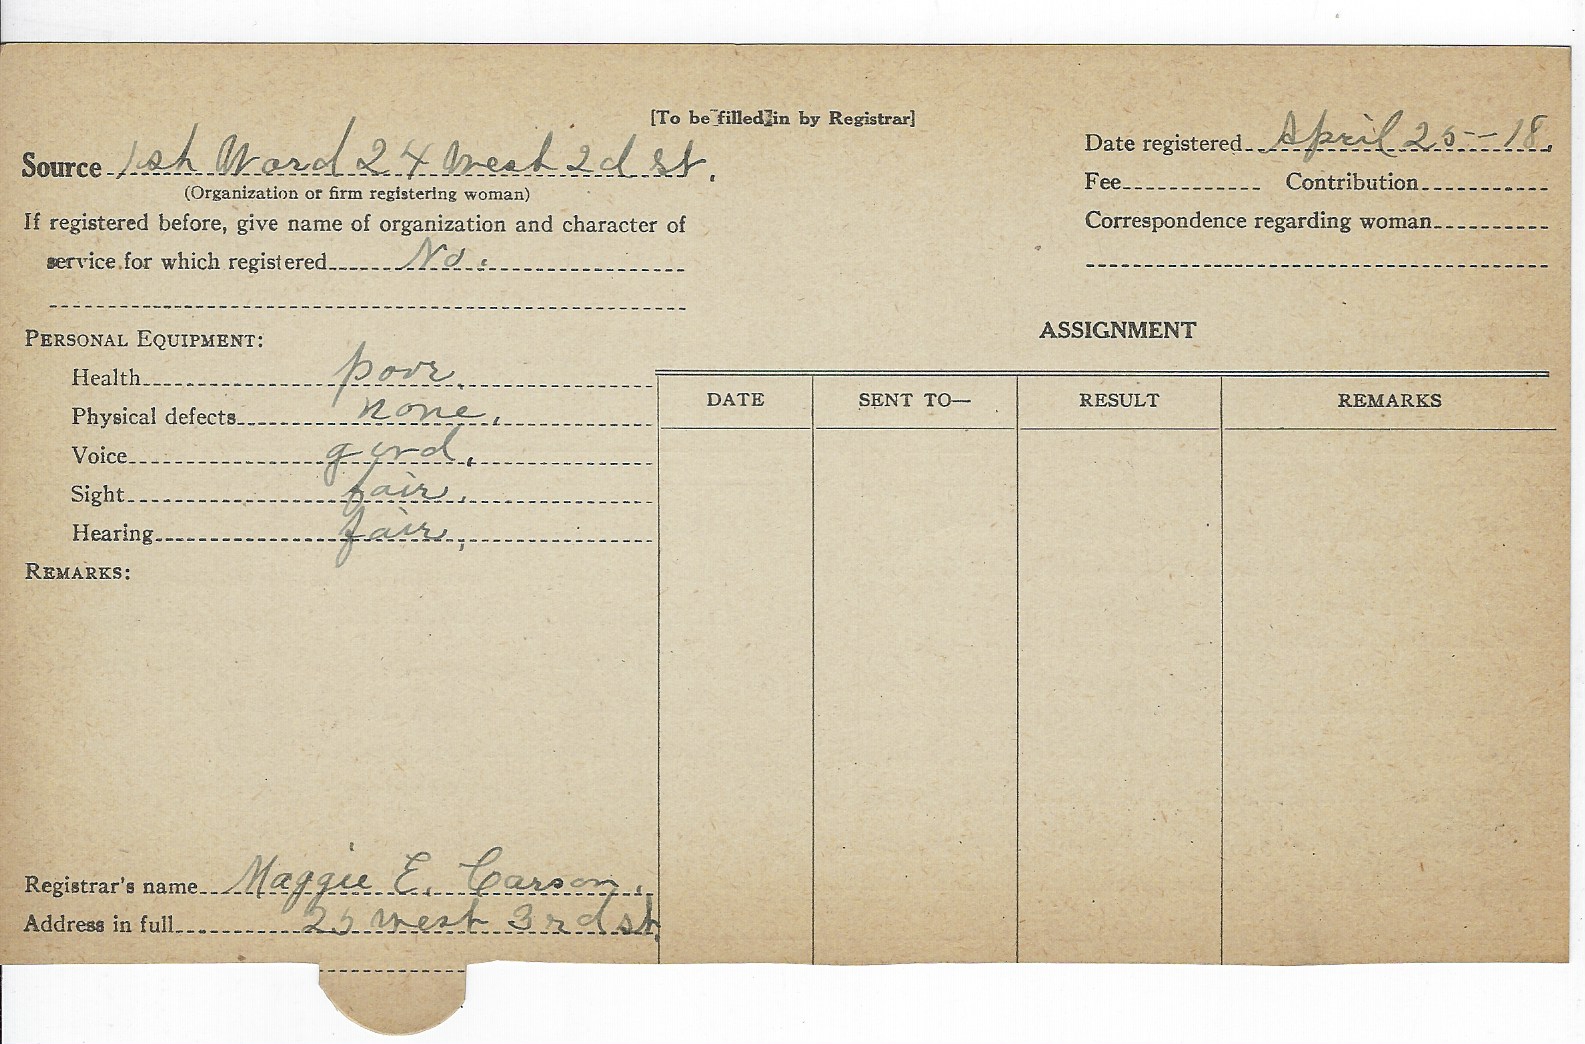 [To be filled in by Registrar]
Source 1st Ward 24 West 2d St.
(Organization or firm registering woman)
If registered before, give name of organization and character of
service for which registered No.
Date registered April 25-18.
Fee Contribution
Correspondence regarding woman
PERSONAL EQUIPMENT:
Health poor.
Physical defects none.
Voice good.
Sight fair.
Hearing fair.
REMARKS:
ASSIGNMENT
DATE SENT TO— RESULT REMARKS
Registrar's name Maggie E. Carson.
Address in full 25 West 3rd st.